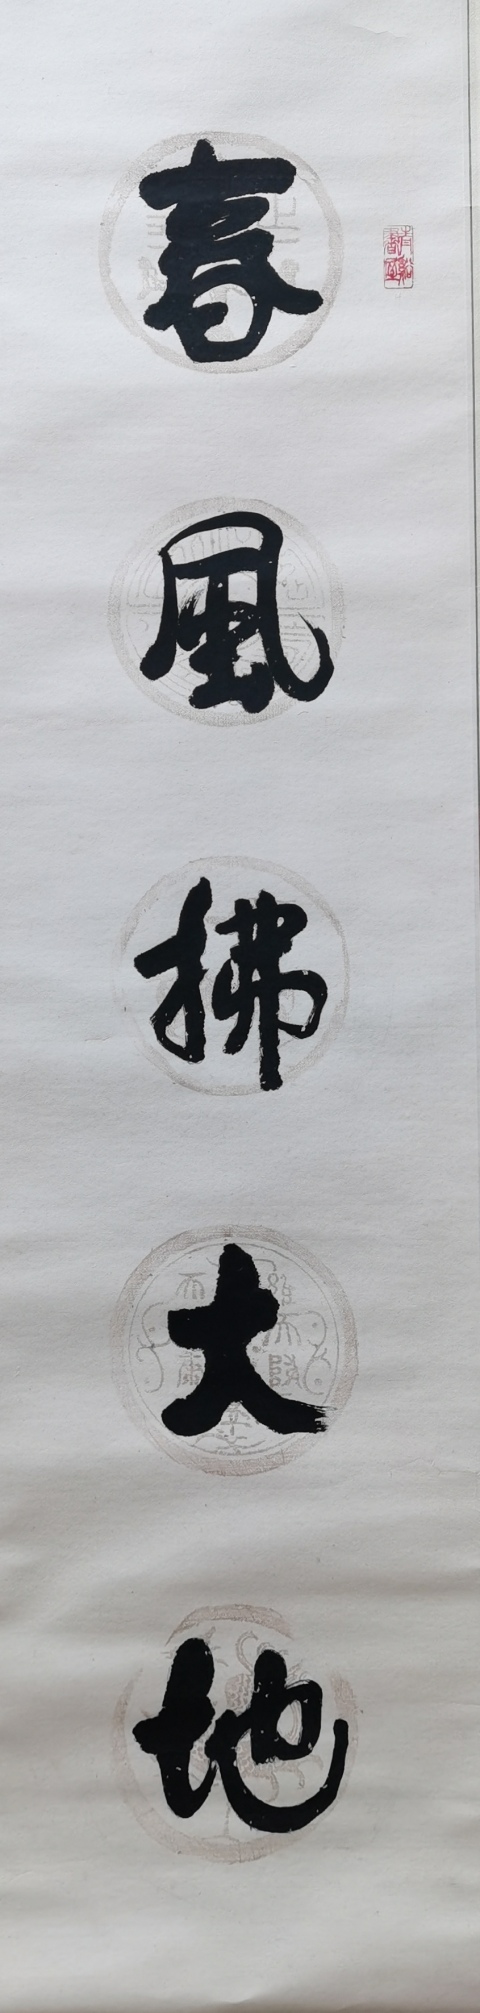 春風拂大地